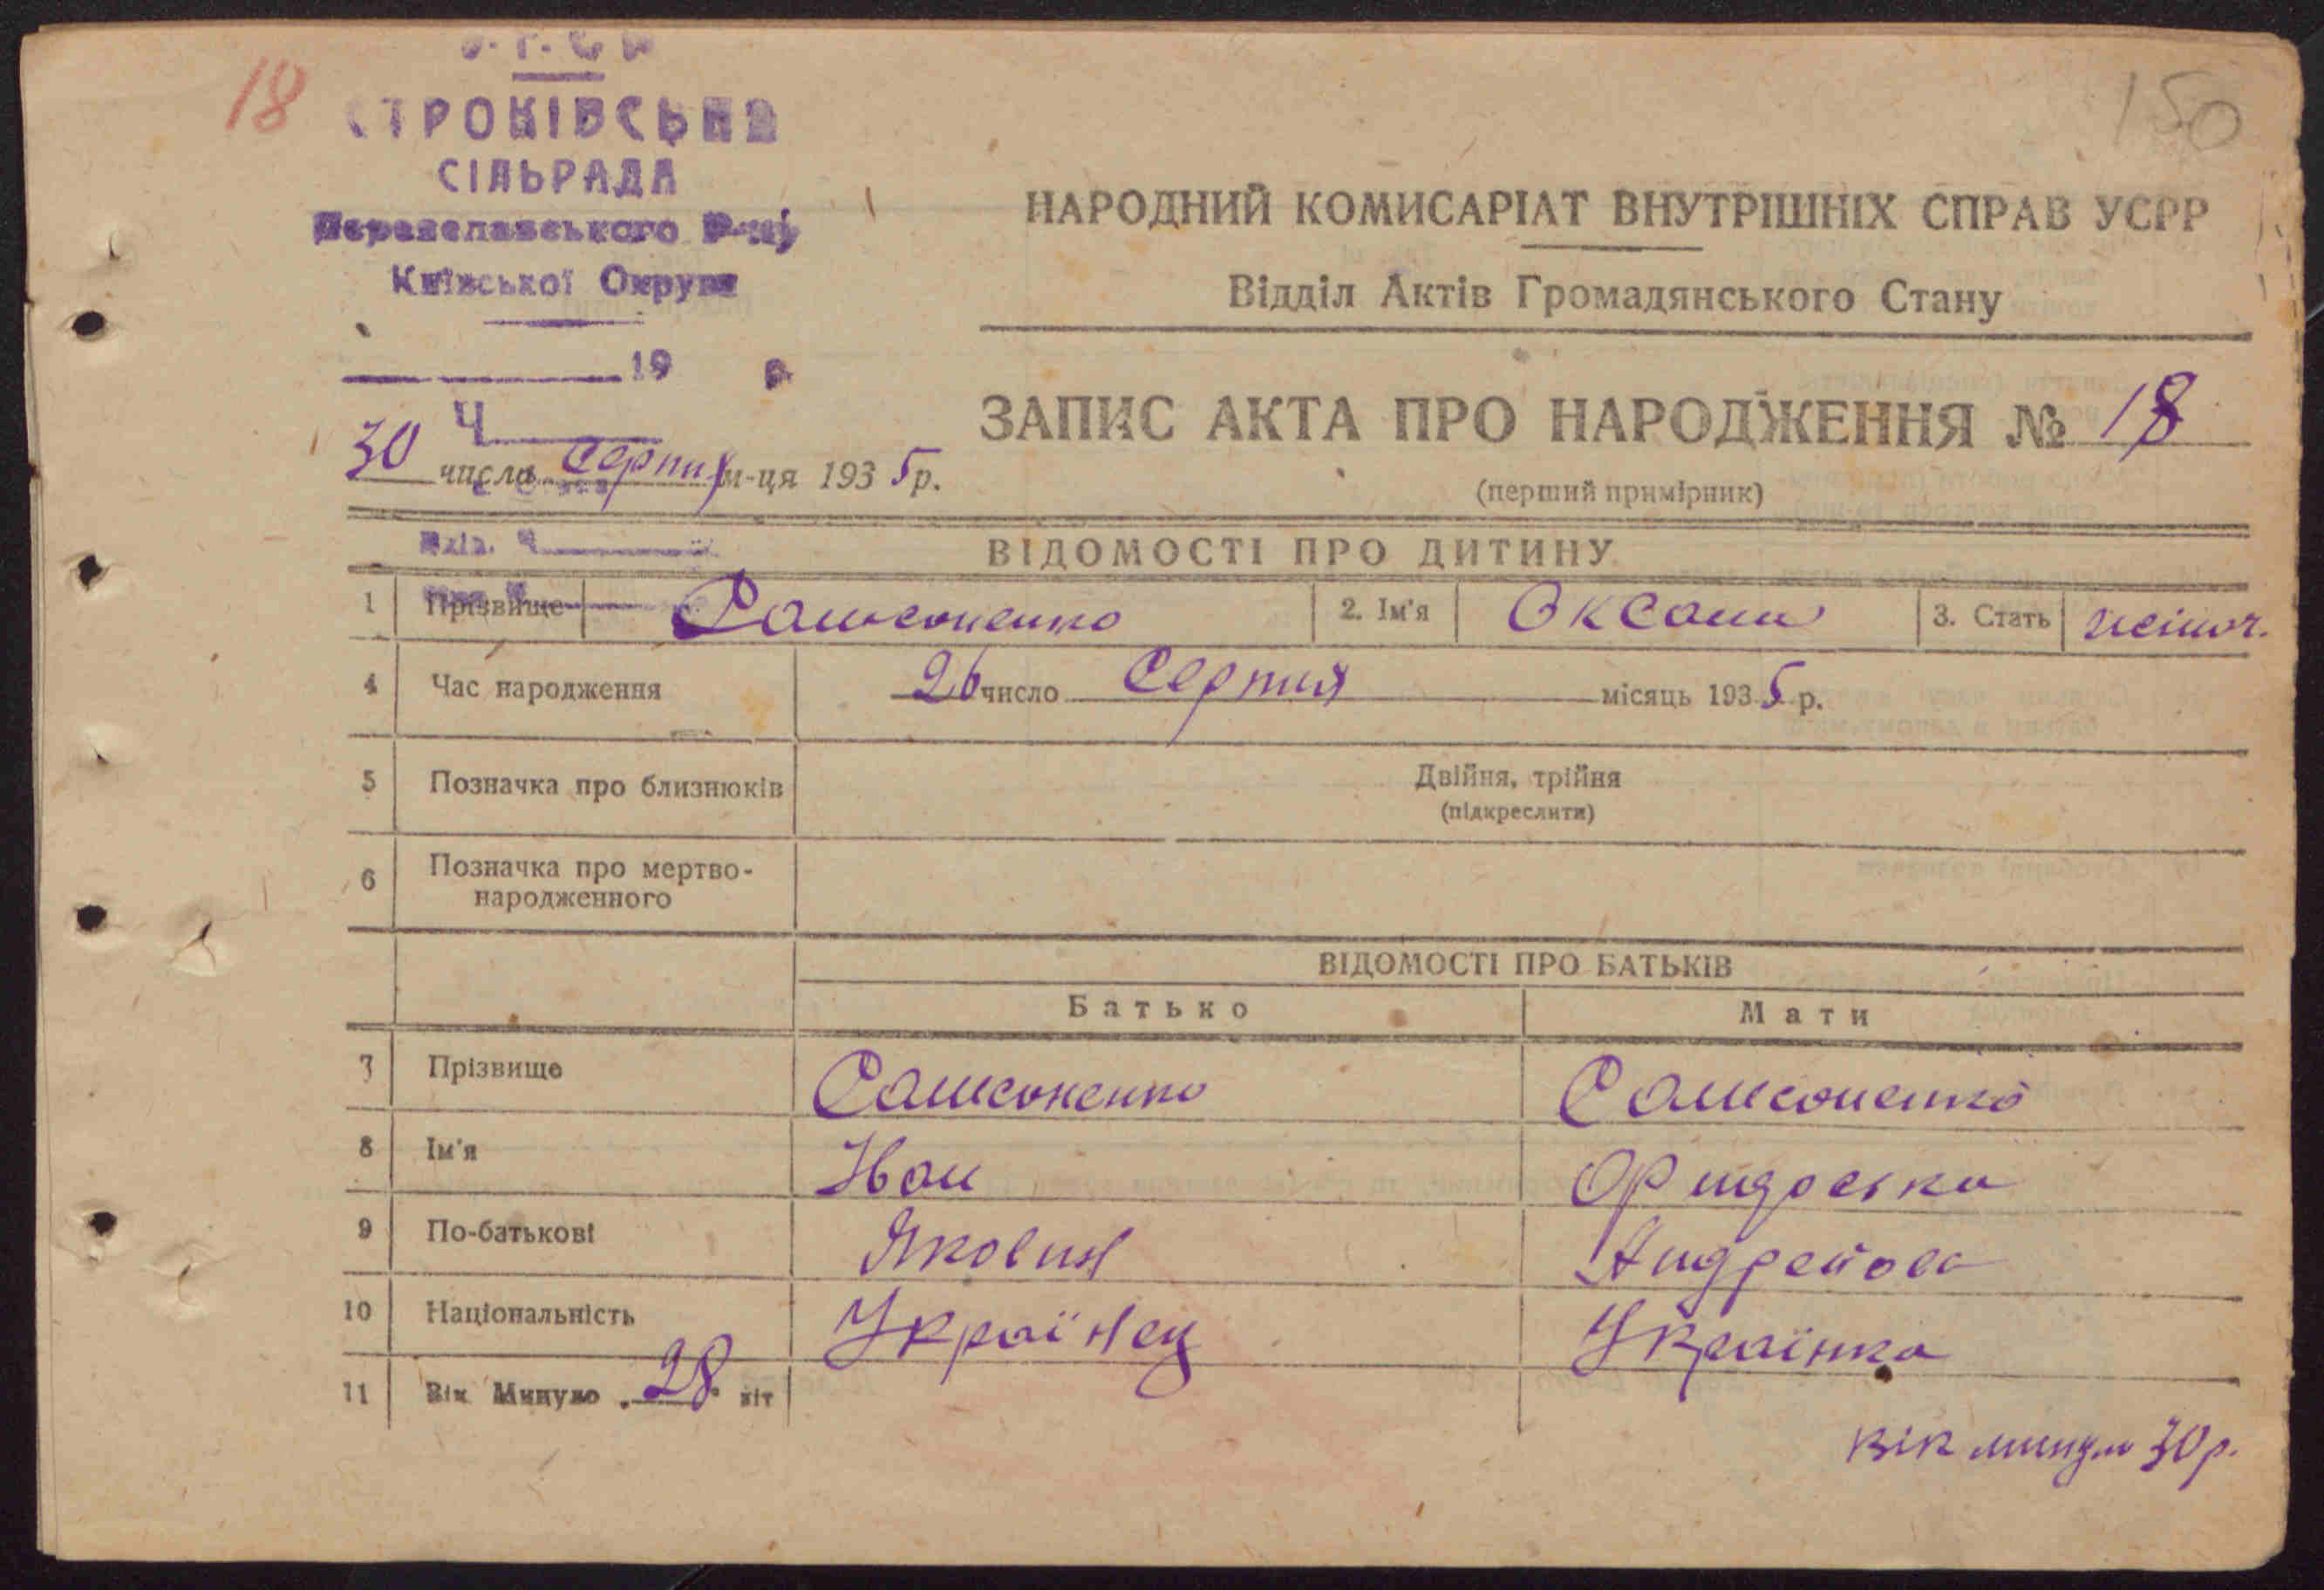 18
150
СТРОКІВСЬКА
СІЛЬРАДА
Переяславського Р-ну
Київської Округи
19 р.
Ч
НАРОДНИЙ КОМИСАРІАТ ВНУТРІШНІХ СПРАВ УСРР
Відділ Актів Громадянського Стану
ЗАПИС АКТА ПРО НАРОДЖЕННЯ № 18
(перший примірник)
30 числа Серпня м-ця 1935 р.
ВІДОМОСТІ ПРО ДИТИНУ
1 Прізвище Самсоненко 2. Ім'я Оксани 3. Стать жіноч.
4 Час народження 26 число Серпня місяць 1935 р.
5 Позначка про близнюків Двійня, трійня
(підкреслити)
6 Позначка про мертво-
народженного
ВІДОМОСТІ ПРО БАТЬКІВ
Батько Мати
7 Прізвище Самсоненко Самсоненко
8 Ім'я Иван
9 По-батькові Яковин Андрейова
10 Національність Українец Українка
11 Вік Минуло 28 літ
вік минуло 30 р.